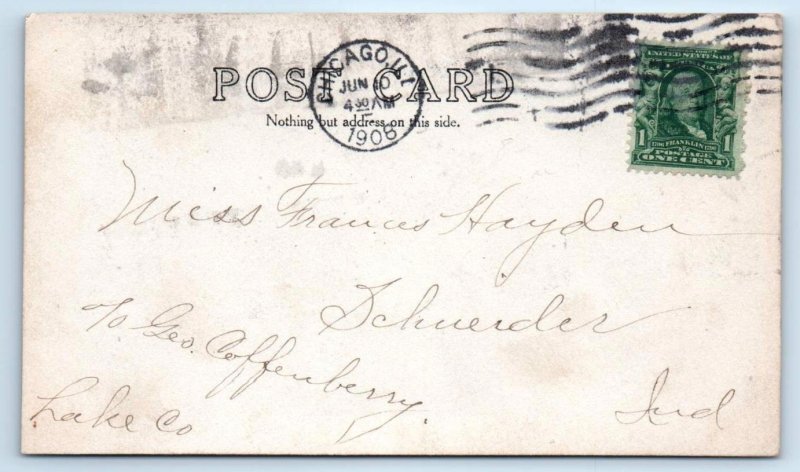 POST CARD
Nothing but address on this side.
CHICAGO, ILL
JUN 10
4 30 AM
1908
UNITED STATES OF
FRANKLIN
1 POSTAGE 1
ONE CENT
Miss Frances Hayden
Schneider
c/o Geo. Coffenberry.
Lake Co Ind